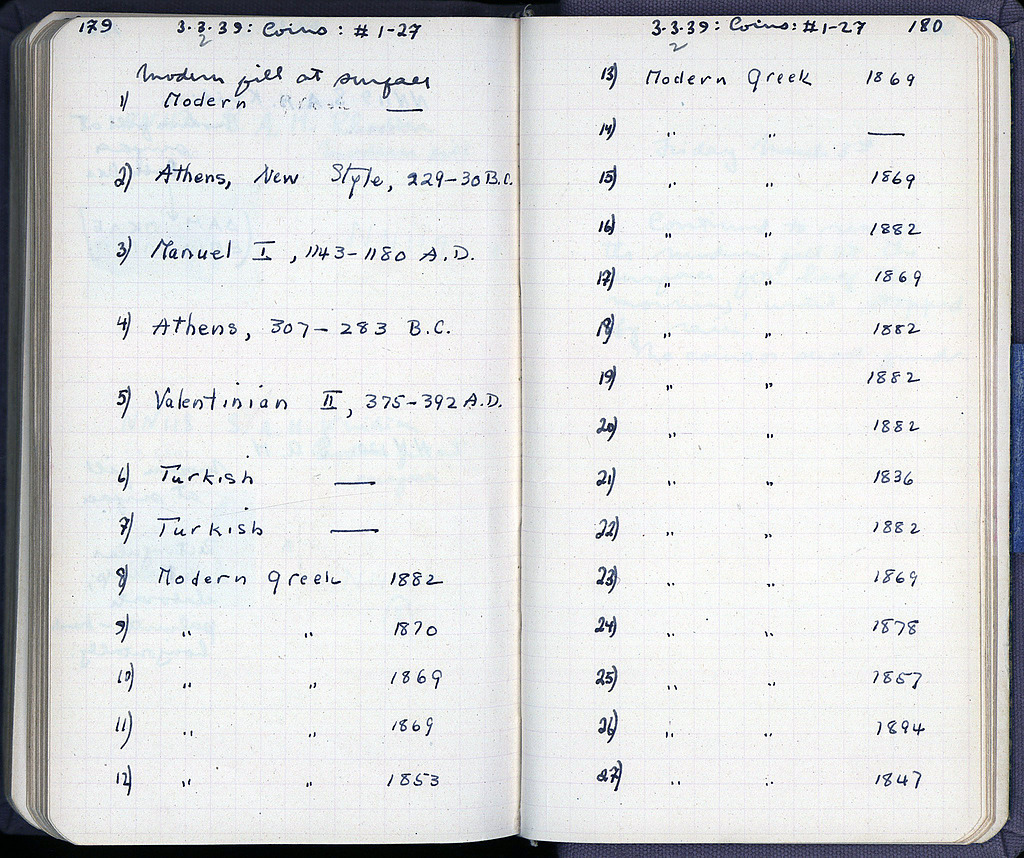 179 3.3.39: Coins: #1-27
2
Modern fill at surface
1) Modern —
2) Athens, New Style, 229-30 B.C.
3) Manuel I, 1143-1180 A.D.
4) Athens, 307-283 B.C.
5) Valentinian II, 375-392 A.D.
6) Turkish —
7) Turkish —
8) Modern Greek 1882
9) " " 1870
10) " " 1869
11) " " 1869
12) " " 1853
3.3.39: Coins: #1-27 180
2
13) Modern Greek 1869
14) " " —
15) " " 1869
16) " " 1882
17) " " 1869
18) " " 1882
19) " " 1882
20) " " 1882
21) " " 1836
22) " " 1882
23) " " 1869
24) " " 1878
25) " " 1857
26) " " 1894
27) " " 1847